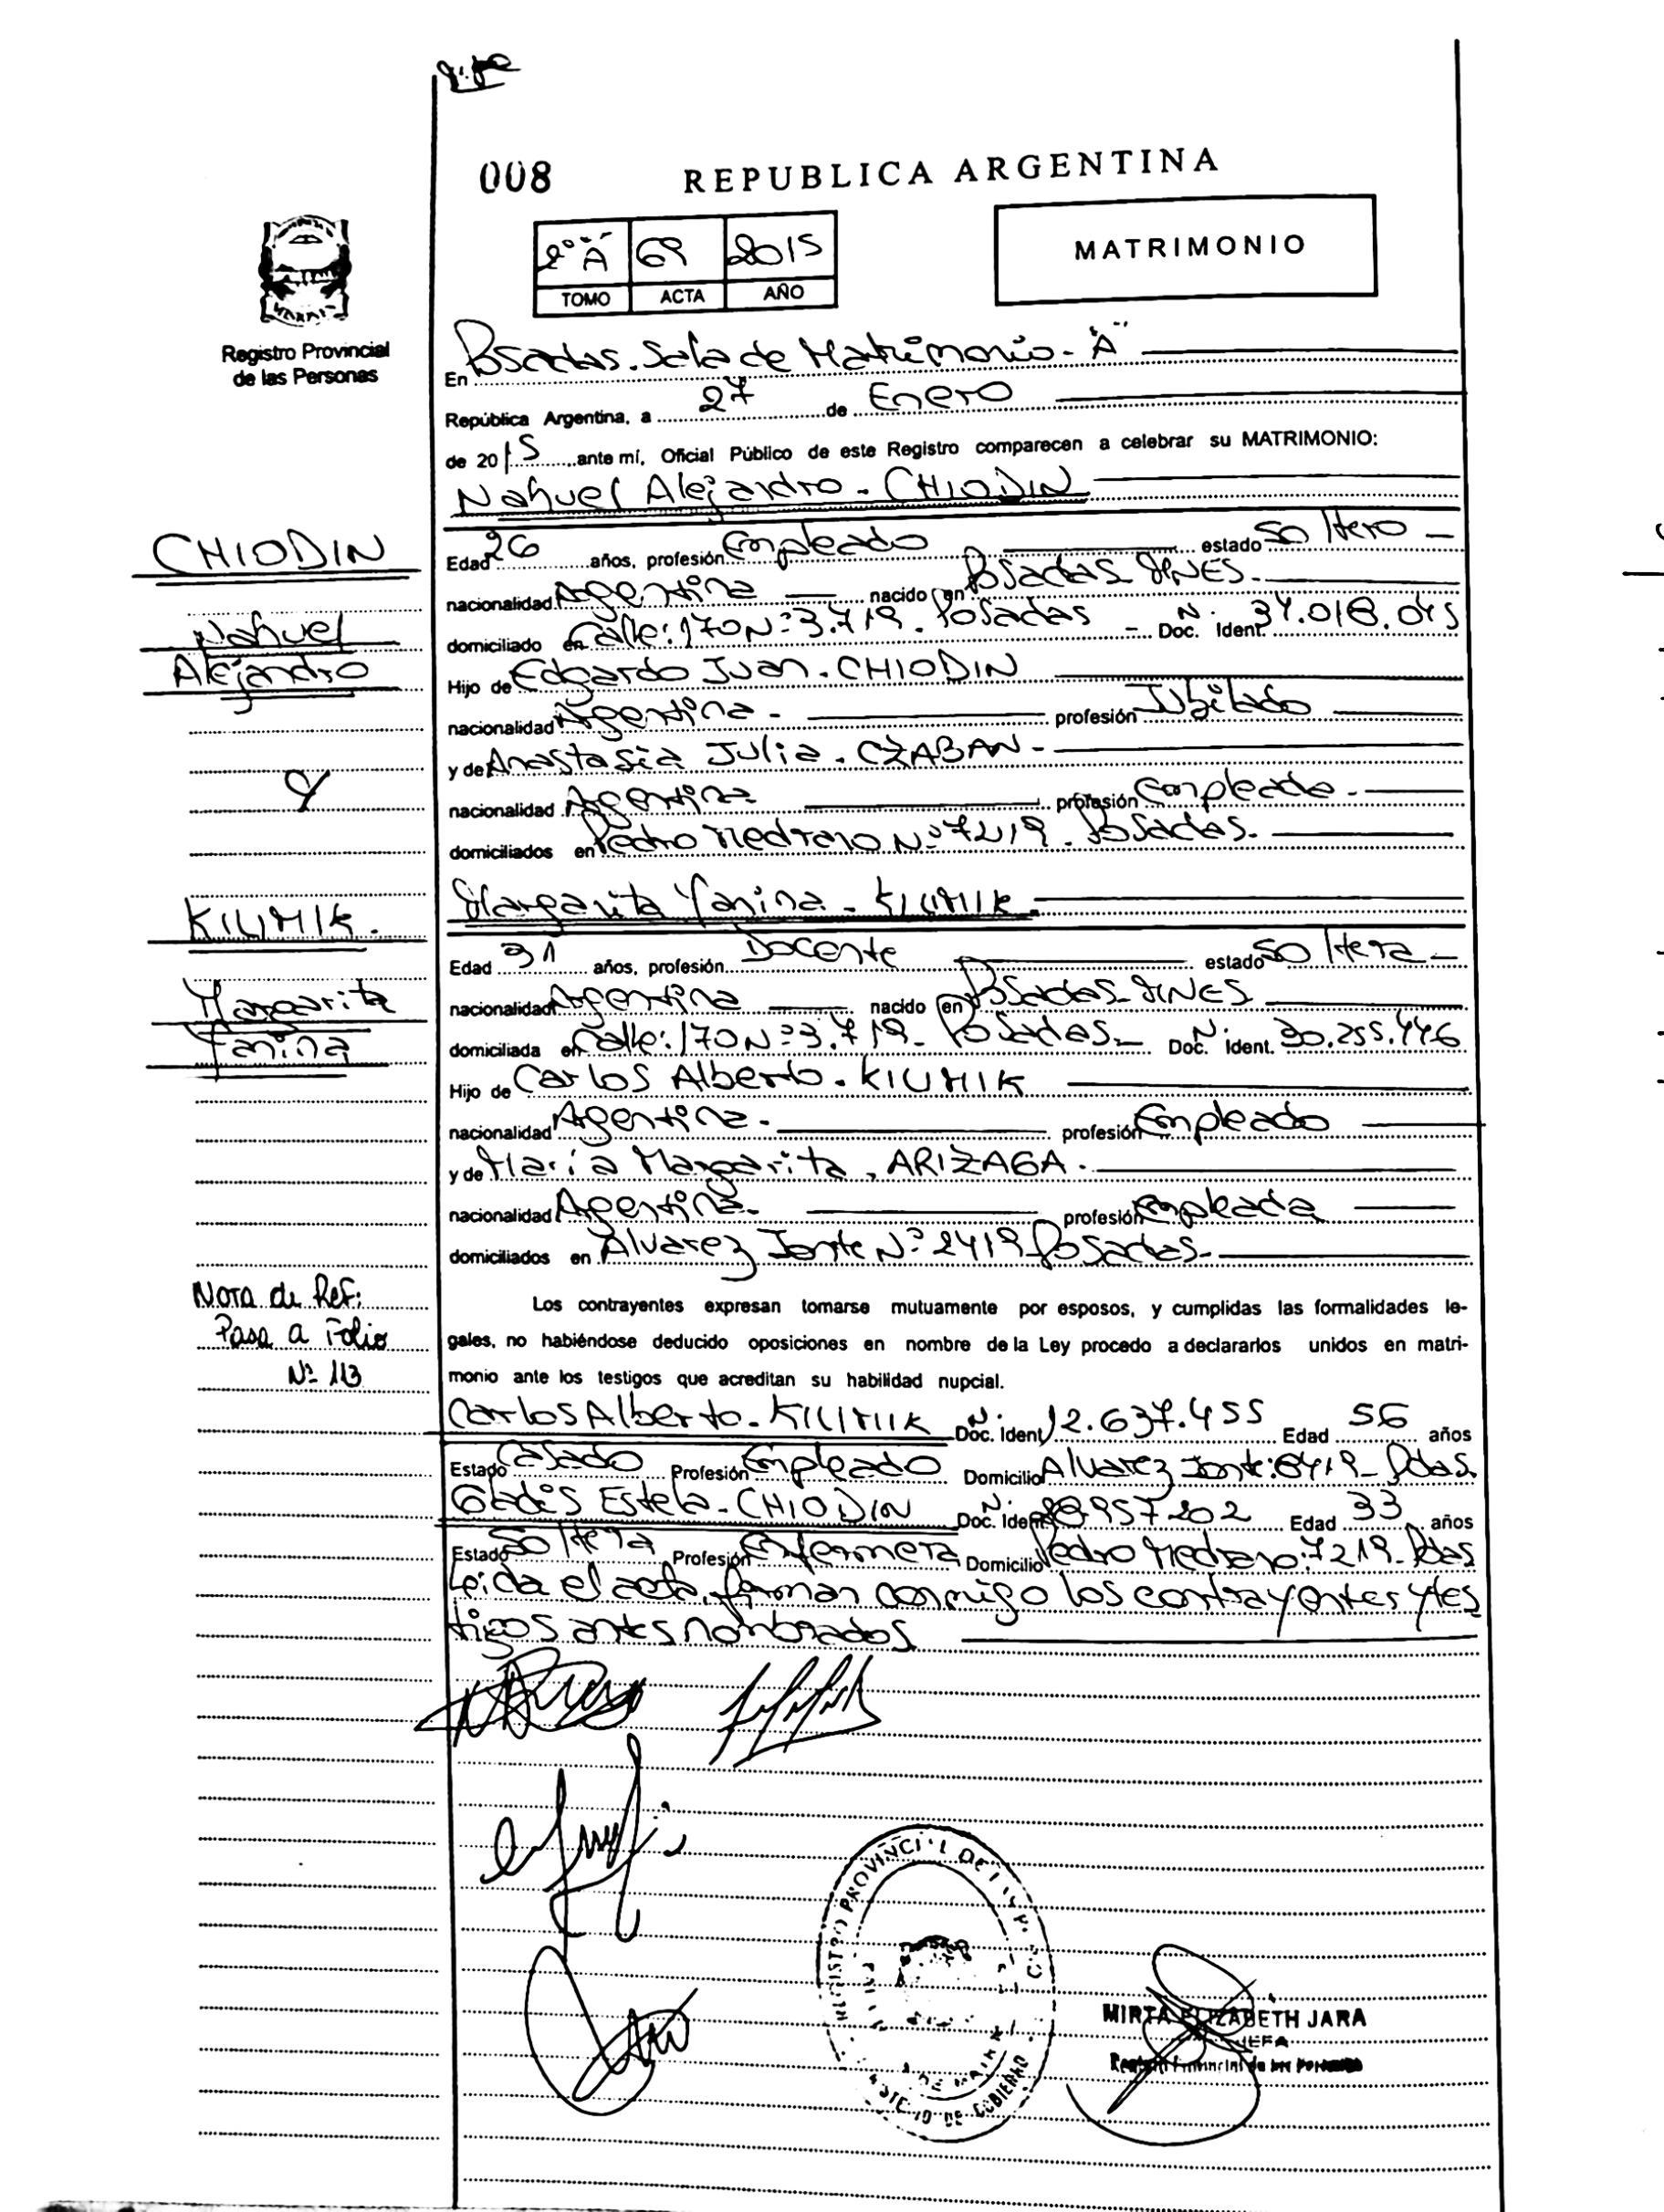 008 REPUBLICA ARGENTINA
2º "A" 69 2015
TOMO ACTA AÑO
MATRIMONIO
Registro Provincial
de las Personas
En Posadas. Sala de Matrimonio - "A"
República Argentina, a 27 de Enero
de 2015 ante mí, Oficial Público de este Registro comparecen a celebrar su MATRIMONIO:
Nahuel Alejandro - CHIODIN
CHIODIN
Nahuel
Alejandro
Edad 26 años, profesión Empleado estado Soltero -
nacionalidad Argentina nacido en Posadas
domiciliado en Calle: 170 Nº 3.719. Posadas - Doc. Ident. Nº 34.018.045
Hijo de Edgardo Juan. CHIODIN
nacionalidad Argentina. profesión Jubilado
y de Anastasia Julia. CZABAN -
nacionalidad Argentina profesión Empleada.
domiciliados en Pedro Medrano Nº 7219. Posadas.
y
Margarita Yanina - KILIMIK
KILIMIK.
Margarita
Yanina
Edad 31 años, profesión Docente estado Soltera -
nacionalidad Argentina nacido en Posadas
domiciliada en Calle: 170 Nº 3.719 - Posadas - Doc. Ident. Nº 30.255.446
Hijo de Carlos Alberto. KILIMIK
nacionalidad Argentina. profesión Empleado
y de María Margarita, ARIZAGA.
nacionalidad Argentina. profesión Empleada
domiciliados en Alvarez Jonte Nº 2419 Posadas -
Nota de Ref:
Pasa a Folio
Nº 113
Los contrayentes expresan tomarse mutuamente por esposos, y cumplidas las formalidades le-
gales, no habiéndose deducido oposiciones en nombre de la Ley procedo a declararlos unidos en matri-
monio ante los testigos que acreditan su habilidad nupcial.
Carlos Alberto. KILIMIK Doc. Ident. Nº 12.637.455 Edad 56 años
Estado Casado Profesión Empleado Domicilio Alvarez Jonte: - Pdas.
Gladis Estela - CHIODIN Doc. Ident. Edad 33 años
Estado Soltera Profesión Enfermera Domicilio Pedro Medrano: 7219 - Pdas
Leida el acta, firman conmigo los contrayentes y tes
tigos antes nombrados
MIRTA ELIZABETH JARA
JEFA